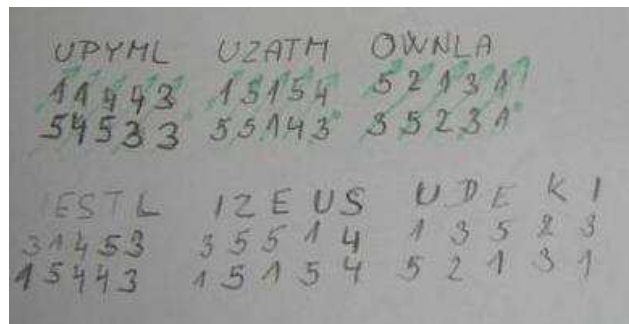 UPYML UZATM OWNLA
11443 15154 52131
54533 55143 35231
IESTL IZEUS UDEKI
31453 35514 13523
15443 15154 52131